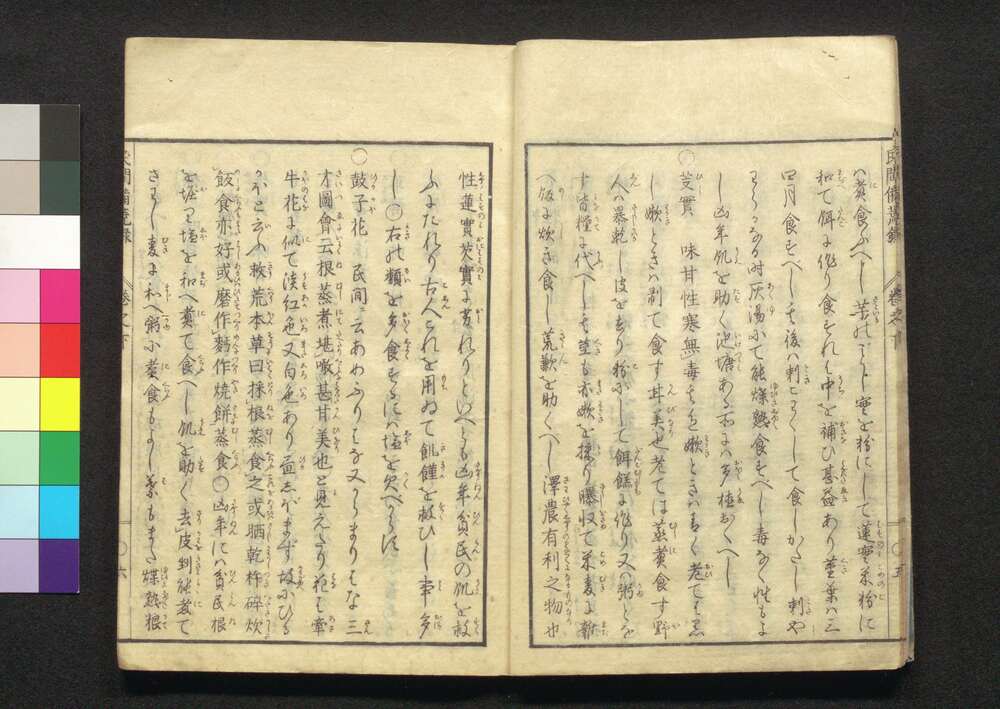 民間備荒録 巻之下 ○五
ハ煮食ふべし 實を粉にして蓮實菜粉に
和て餌に作り食すれハ中を補ひ甚益あり 莖葉ハ三
四月食すべし 其後ハ刺こはくして食しがたし 刺や
わらかなる時灰湯にて能煠熟食すべし 毒なく性もよ
し 凶年飢を助く 池塘ある所にハ多植おくべし
○芰實 味甘性寒無毒 其色嫩ときハ青く老てハ黒
し 嫩ときハ剥て食す甘美也 老てハ蒸煮食す 野
人ハ暴乾し皮を去り粉にして餌餻に作り又ハ粥とな
す皆糧に代べし 其莖も亦嫩を採り曝収て米麦に雜
へ飯に炊き食し荒歉を助くべし 澤農有利之物也
性蓮實芡實に劣れりといへとも凶年貧民の飢を救
ふにたれり 古人これを用ゐて飢饉を救ひし事多
し ○右の類を多食するにハ塩を欠べからず
○鼓子花 民間に云あめふりはな又からまりはな 三
才圖會云根蒸煮堪噉甚甘美也と見えたり 花は牽
牛花に似て淡紅色又白色あり 晝しぼまず故にひる
かほと云ふ 救荒本草曰採根蒸食之或晒乾杵碎炊
飯食亦好或磨作麪作燒餅蒸食 ○凶年にハ貧民根
を堀り塩を和へ煮て食へし飢を助く 去皮剉能煮て
きまし麦に和へ粥に煮食もよし 葉もまた煠熟根
民間備荒録 巻之下 ○六